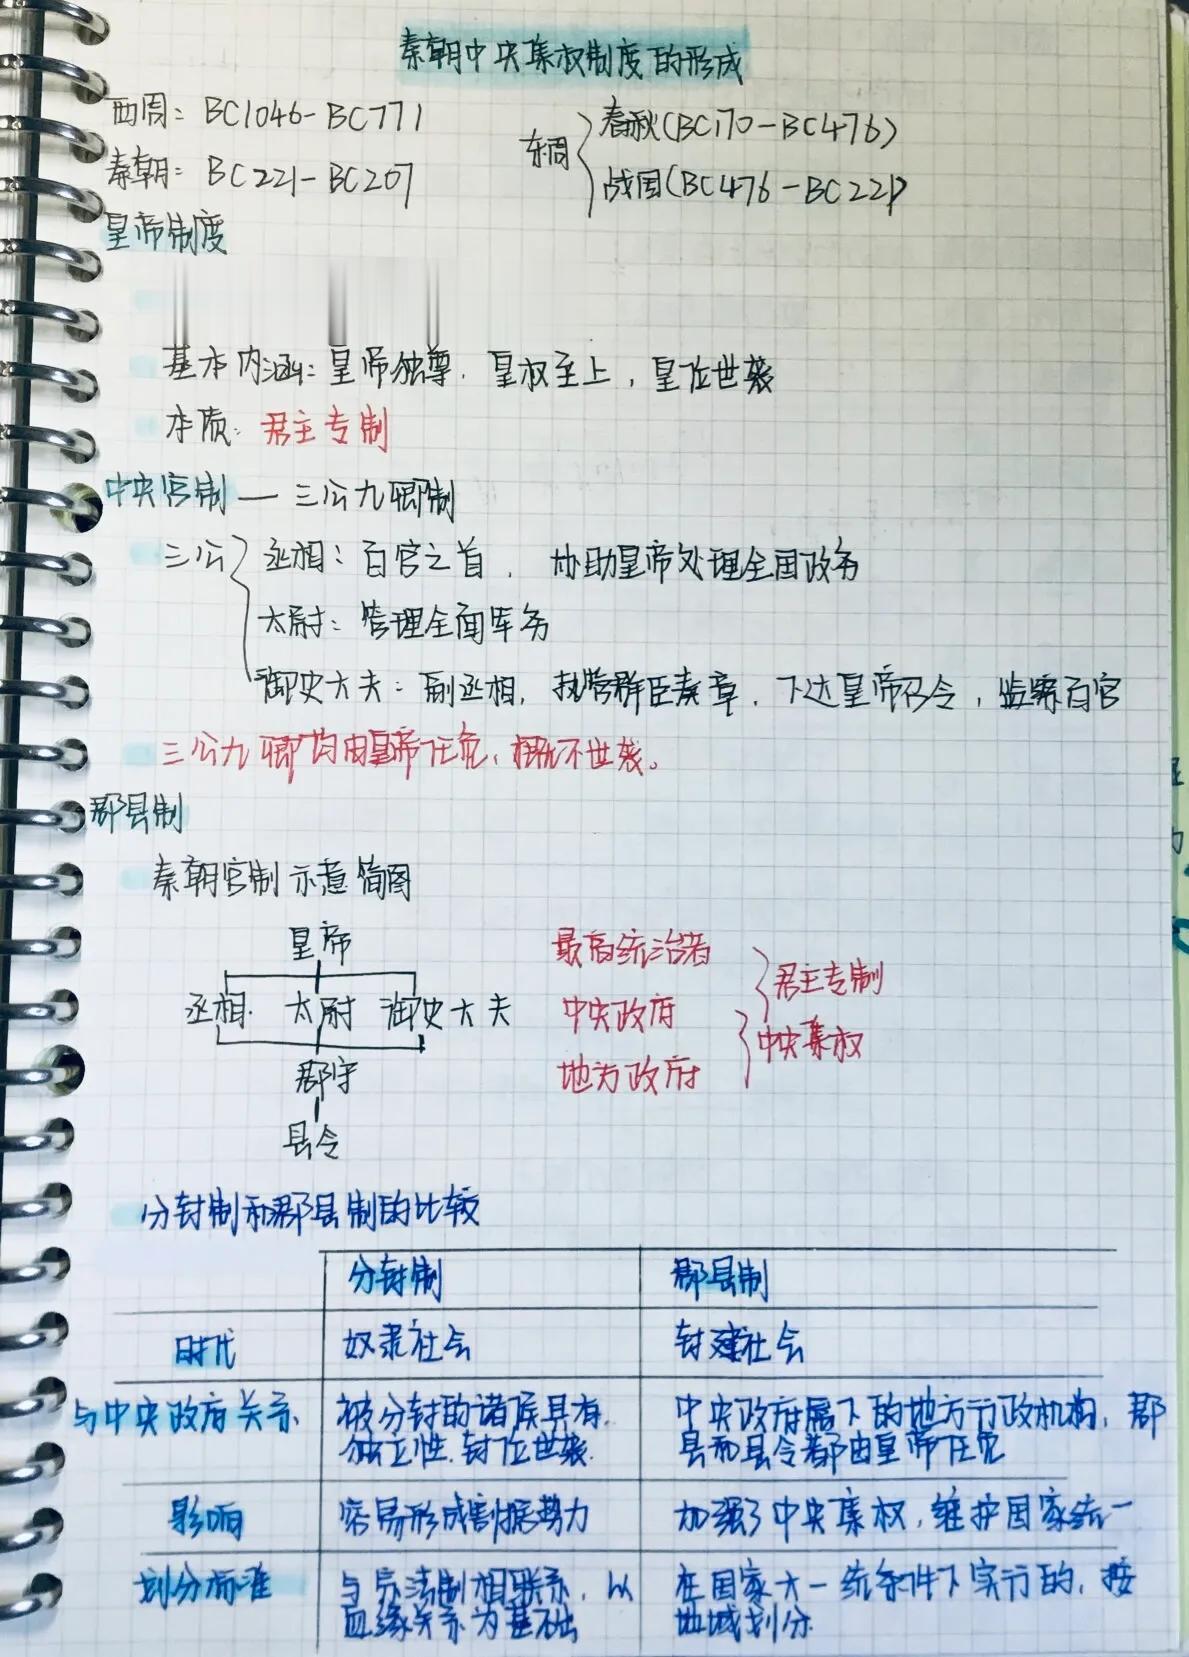 秦朝中央集权制度的形成
西周：BC1046-BC771
东周
春秋(BC170-BC476)
战国(BC476-BC221)
秦朝：BC221-BC207
皇帝制度
基本内涵：皇帝独尊，皇权至上，皇位世袭
本质：君主专制
中央官制—三公九卿制
三公
丞相：百官之首，协助皇帝处理全国政务
太尉：管理全国军务
御史大夫：副丞相，执掌群臣奏章，下达皇帝召令，监察百官
三公九卿均由皇帝任免，概不世袭。
郡县制
秦朝官制示意简图
皇帝
丞相 太尉 御史大夫
郡守
县令
最高统治者
中央政府
地方政府
君主专制
中央集权
分封制和郡县制的比较
分封制 郡县制
时代 奴隶社会 封建社会
与中央政府关系
被分封的诸侯具有
独立性，封位世袭
中央政府属下的地方行政机构，郡
县和县令都由皇帝任免
影响 容易形成割据势力 加强了中央集权，维护国家统一
划分标准
与宗法制相联系，以
血缘关系为基础
在国家大一统条件下实行的，按
地域划分